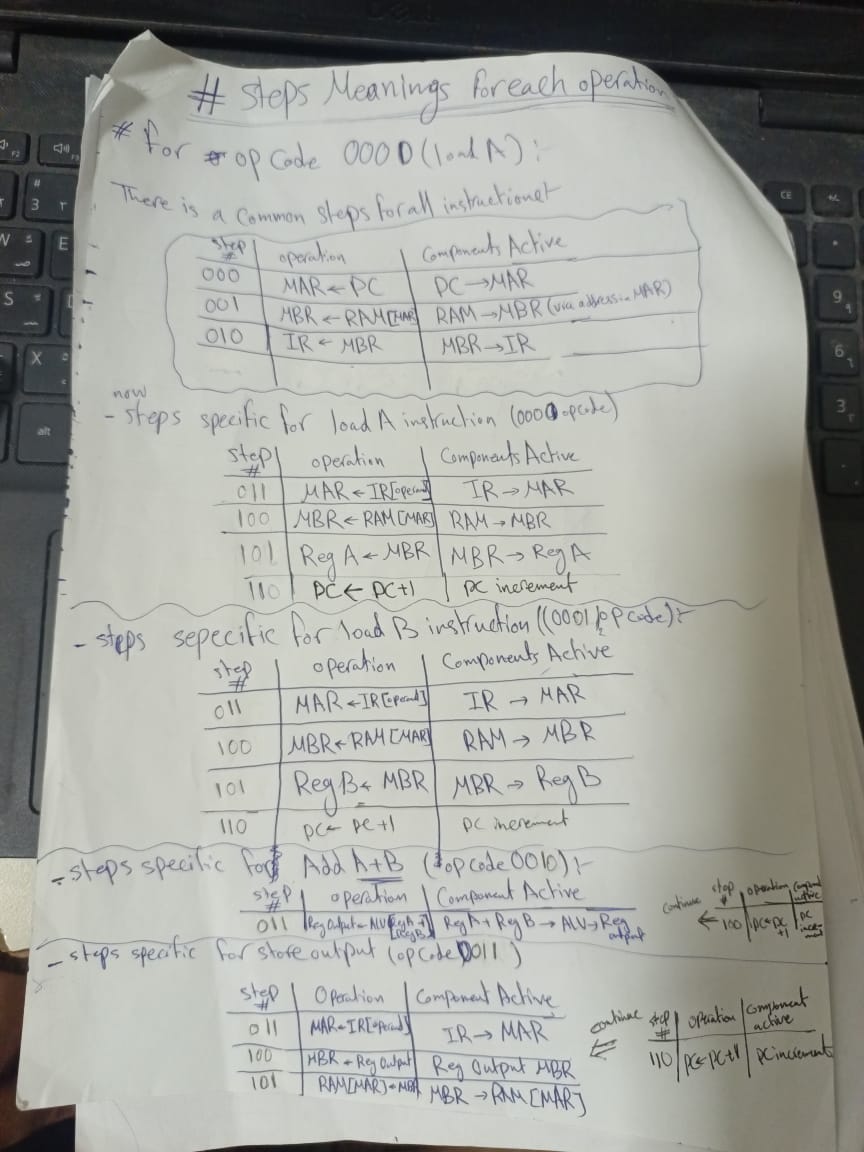 # Steps Meanings foreach operation
* for op Code 0000 (load A) :-
There is a Common steps for all instructionet
step # | operation | Components Active
000 | MAR ← PC | PC → MAR
001 | MBR ← RAM[MAR] | RAM → MBR (via address in MAR)
010 | IR ← MBR | MBR → IR
now
- steps specific for load A instruction (0000 opcode)
step # | operation | Components Active
011 | MAR ← IR[operand] | IR → MAR
100 | MBR ← RAM[MAR] | RAM → MBR
101 | Reg A ← MBR | MBR → Reg A
110 | PC ← PC+1 | PC increment
- steps sepecific for load B instruction ((0001) opcode) :-
step # | operation | Components Active
011 | MAR ← IR[operand] | IR → MAR
100 | MBR ← RAM[MAR] | RAM → MBR
101 | Reg B ← MBR | MBR → Reg B
110 | PC ← PC+1 | PC increment
- steps specific for Add A+B (opcode 0010) :-
step # | operation | Component Active
011 | Reg Output ← ALU[RegA + RegB] | RegA + RegB → ALU → Reg output
continue ← step # | operation | Component active
100 | PC ← PC+1 | PC increment
- steps specific for store output (opCode 0011)
step # | Operation | Component Active
011 | MAR ← IR[operand] | IR → MAR
100 | MBR ← Reg Output | Reg Output MBR
101 | RAM[MAR] ← MBR | MBR → RAM[MAR]
continue ⇐ step # | operation | Component active
110 | PC ← PC+1 | PC increment